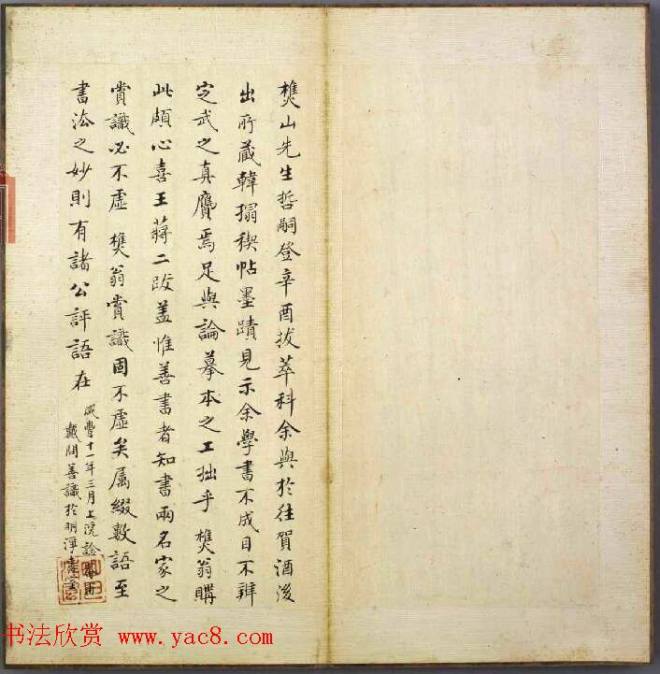 樵山先生哲嗣登辛酉拔萃科余與於往賀酒後
出所藏韓搨稧帖墨蹟見示余學書不成目不辨
定武之真贗焉足與論摹本之工拙乎 樵翁購
此頗心喜王蔣二跋蓋惟善書者知書兩名家之
賞識必不虛 樵翁賞識固不虛矣属綴數語至
書法之妙則有諸公評語在
咸豐十一年三月上浣
戴開善識於明淨
书法欣赏 www.yac8.com